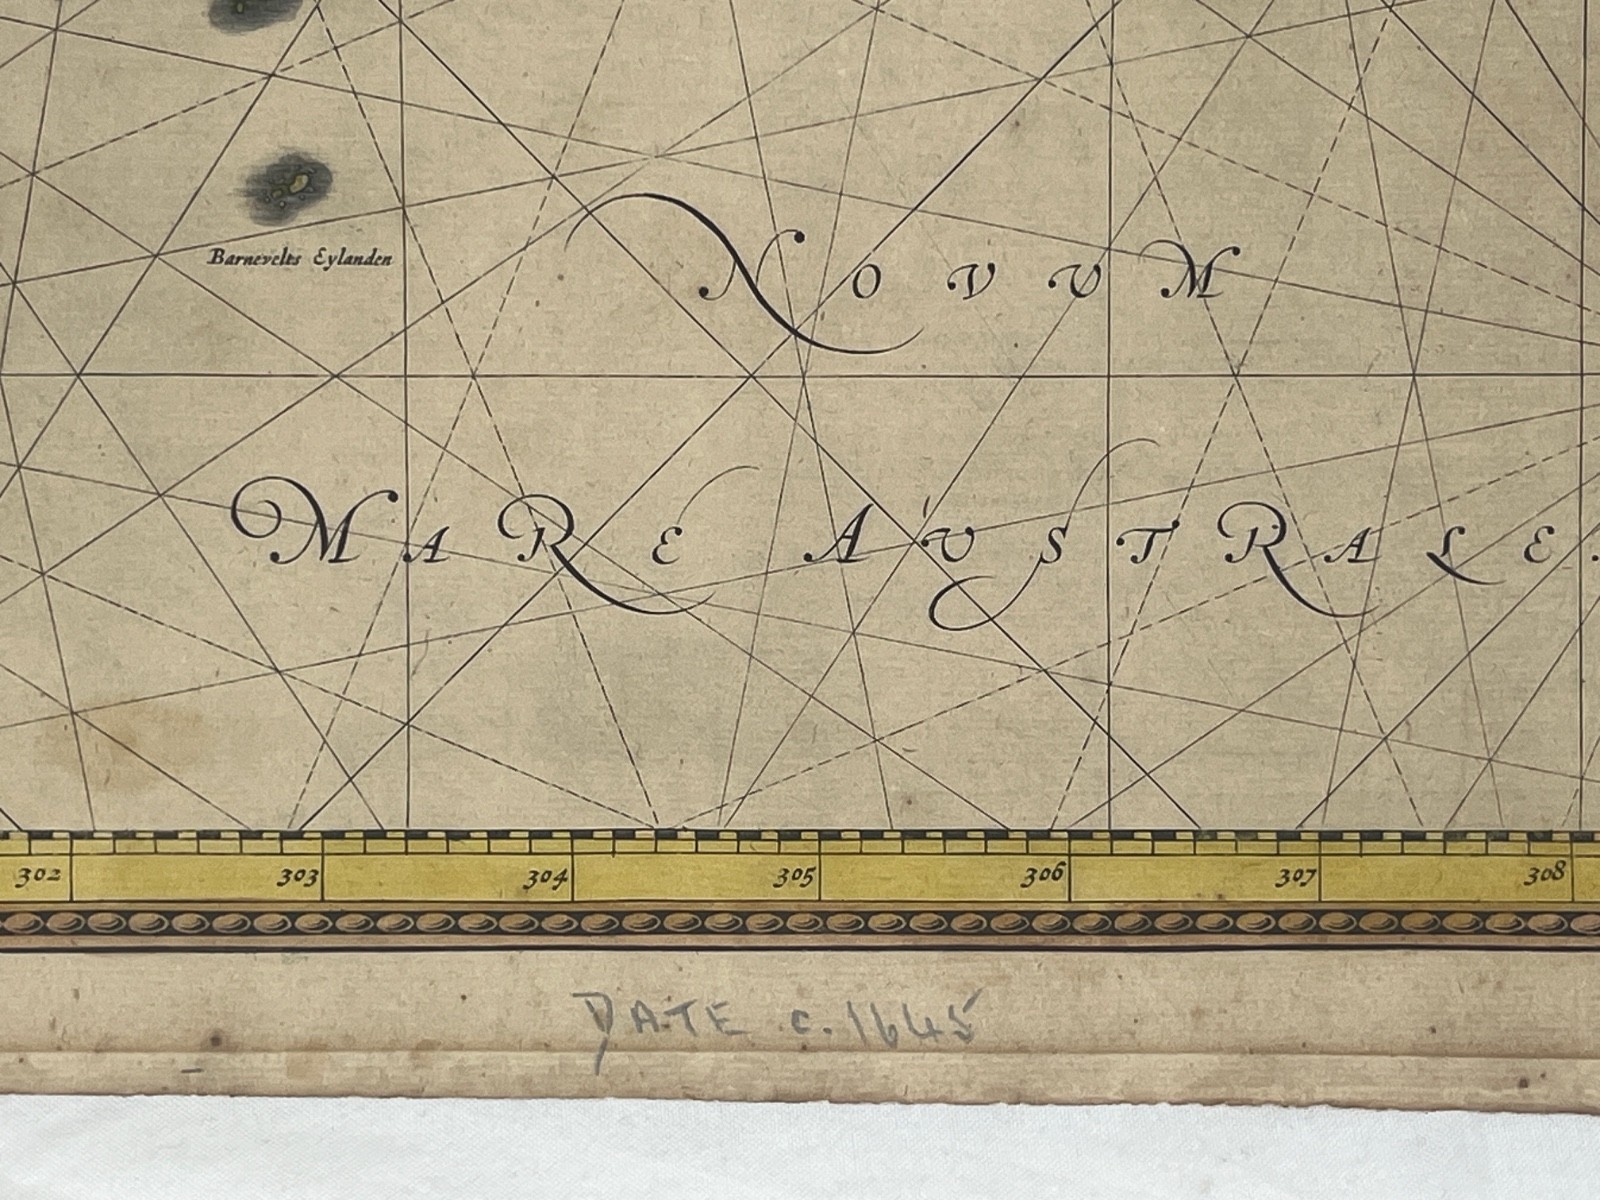 Barnevelts Eylanden
NOVUM
MARE AUSTRALE.
302 303 304 305 306 307 308
DATE c. 1645